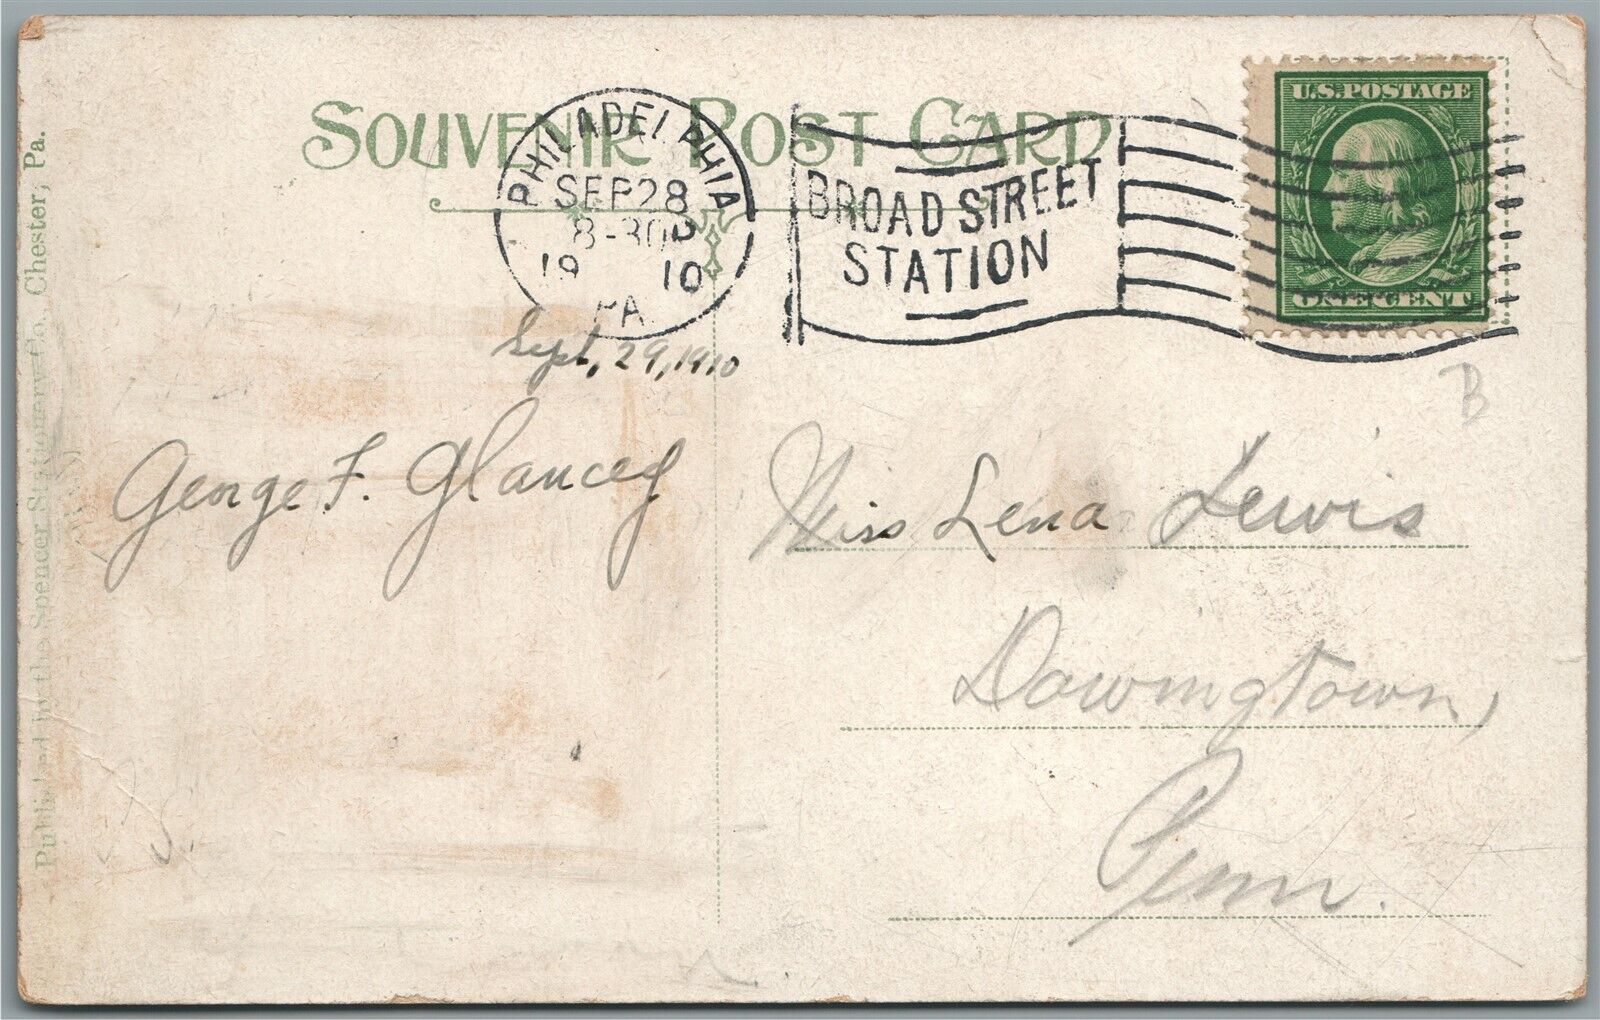 SOUVENIR POST CARD
PHILADELPHIA
SEP 28
8-30P
1910
PA.
BROAD STREET
STATION
U.S. POSTAGE
ONE CENT
B
Sept, 29, 1910
George F. Glancey
Miss Lena Lewis
Downingtown,
Penn.
Published by the Spencer Stationery Co., Chester, Pa.